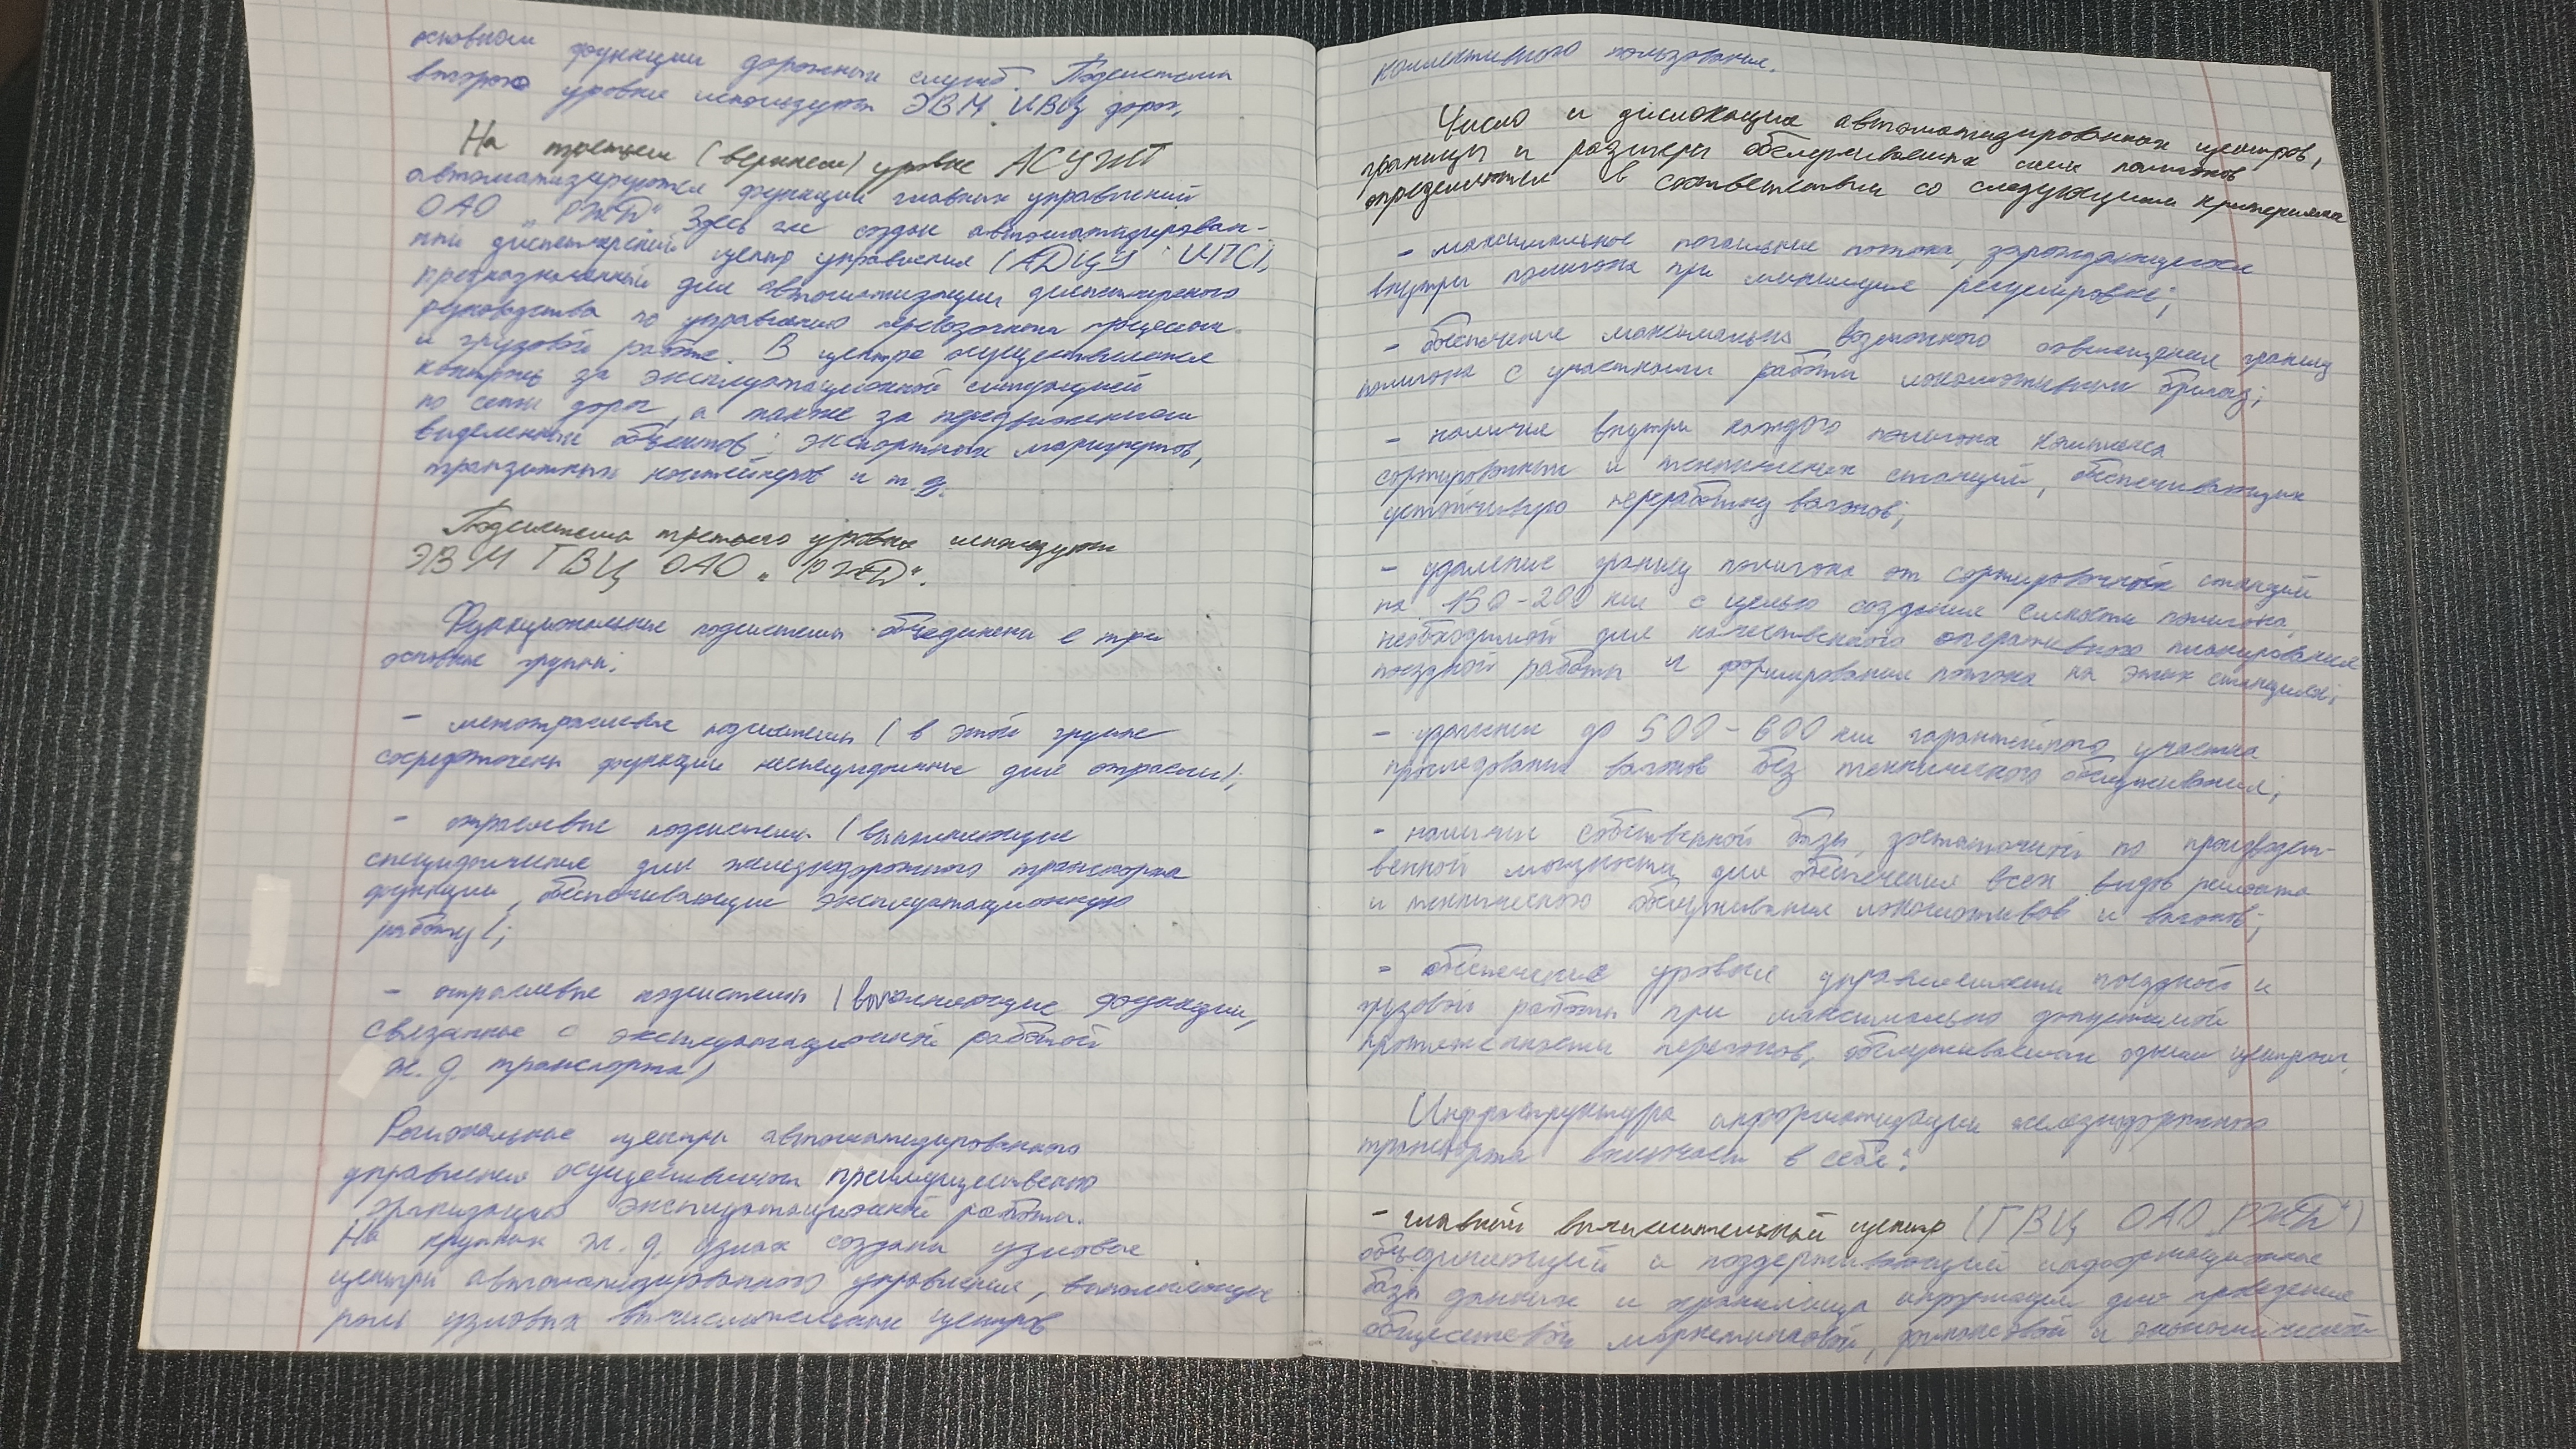 основном функции дорожных служб. Подсистемы
второго уровня используют ЭВМ ИВЦ дорог.
На третьем (верхнем) уровне АСУЖТ
автоматизируются функции главных управлений
ОАО „РЖД“. Здесь же создан автоматизирован-
ный диспетчерский центр управления (АДЦУ МПС),
предназначенный для автоматизации диспетчерского
руководства по управлению перевозочным процессом
и грузовой работе. В центре осуществляется
контроль за эксплуатационной ситуацией
по сети дорог, а также за передвижением
выделенных объектов: экспортных маршрутов,
транзитных контейнеров и т.д.
Подсистема третьего уровня используют
ЭВМ ГВЦ ОАО „РЖД“.
Функциональные подсистемы объединены в три
основные группы:
- межотраслевые подсистемы (в этой группе
сосредоточены функции неспецифичные для отрасли);
- отраслевые подсистемы (выполняющие
специфические для железнодорожного транспорта
функции, обеспечивающие эксплуатационную
работу);
- отраслевые подсистемы (выполняющие функции,
связанные с эксплуатационной работой
ж.д. транспорта)
Региональные центры автоматизированного
управления осуществляют преимущественно
организацию эксплуатационной работы.
На крупных ж.д. узлах созданы узловые
центры автоматизированного управления, выполняющие
роль узловых вычислительных центров
коллективного пользования.
Число и дислокация автоматизированных центров,
границы и размеры обслуживаемых ими полигонов
определяются в соответствии со следующими критериями
- максимальное погашение потока, зарождающегося
внутри полигона при минимуме регулировки;
- обеспечение максимально возможного совмещения границ
полигона с участками работы локомотивных бригад;
- наличие внутри каждого полигона комплекса
сортировочных и технических станций, обеспечивающих
устойчивую переработку вагонов;
- удаление границ полигона от сортировочной станций
на 150-200 км с целью создания ёмкости полигона,
необходимой для качественного оперативного планирования
поездной работы и формирования потока на этих станциях;
- удлинение до 500-600 км гарантийного участка
проследования вагонов без технического обслуживания;
- наличии собственной базы, достаточной по производст-
венной мощности для обеспечения всех видов ремонта
и технического обслуживания локомотивов и вагонов;
- обеспечение уровня управления поездной и
грузовой работы при максимально допустимой
протяженности перегонов, обслуживаемых одним центром.
Инфраструктура информатизации железнодорожного
транспорта включает в себя:
- главный вычислительный центр (ГВЦ ОАО „РЖД“)
объединяющий и поддерживающий информационные
базы данных и хранилища информации для проведения
общесетевой маркетинговой, финансовой и экономической